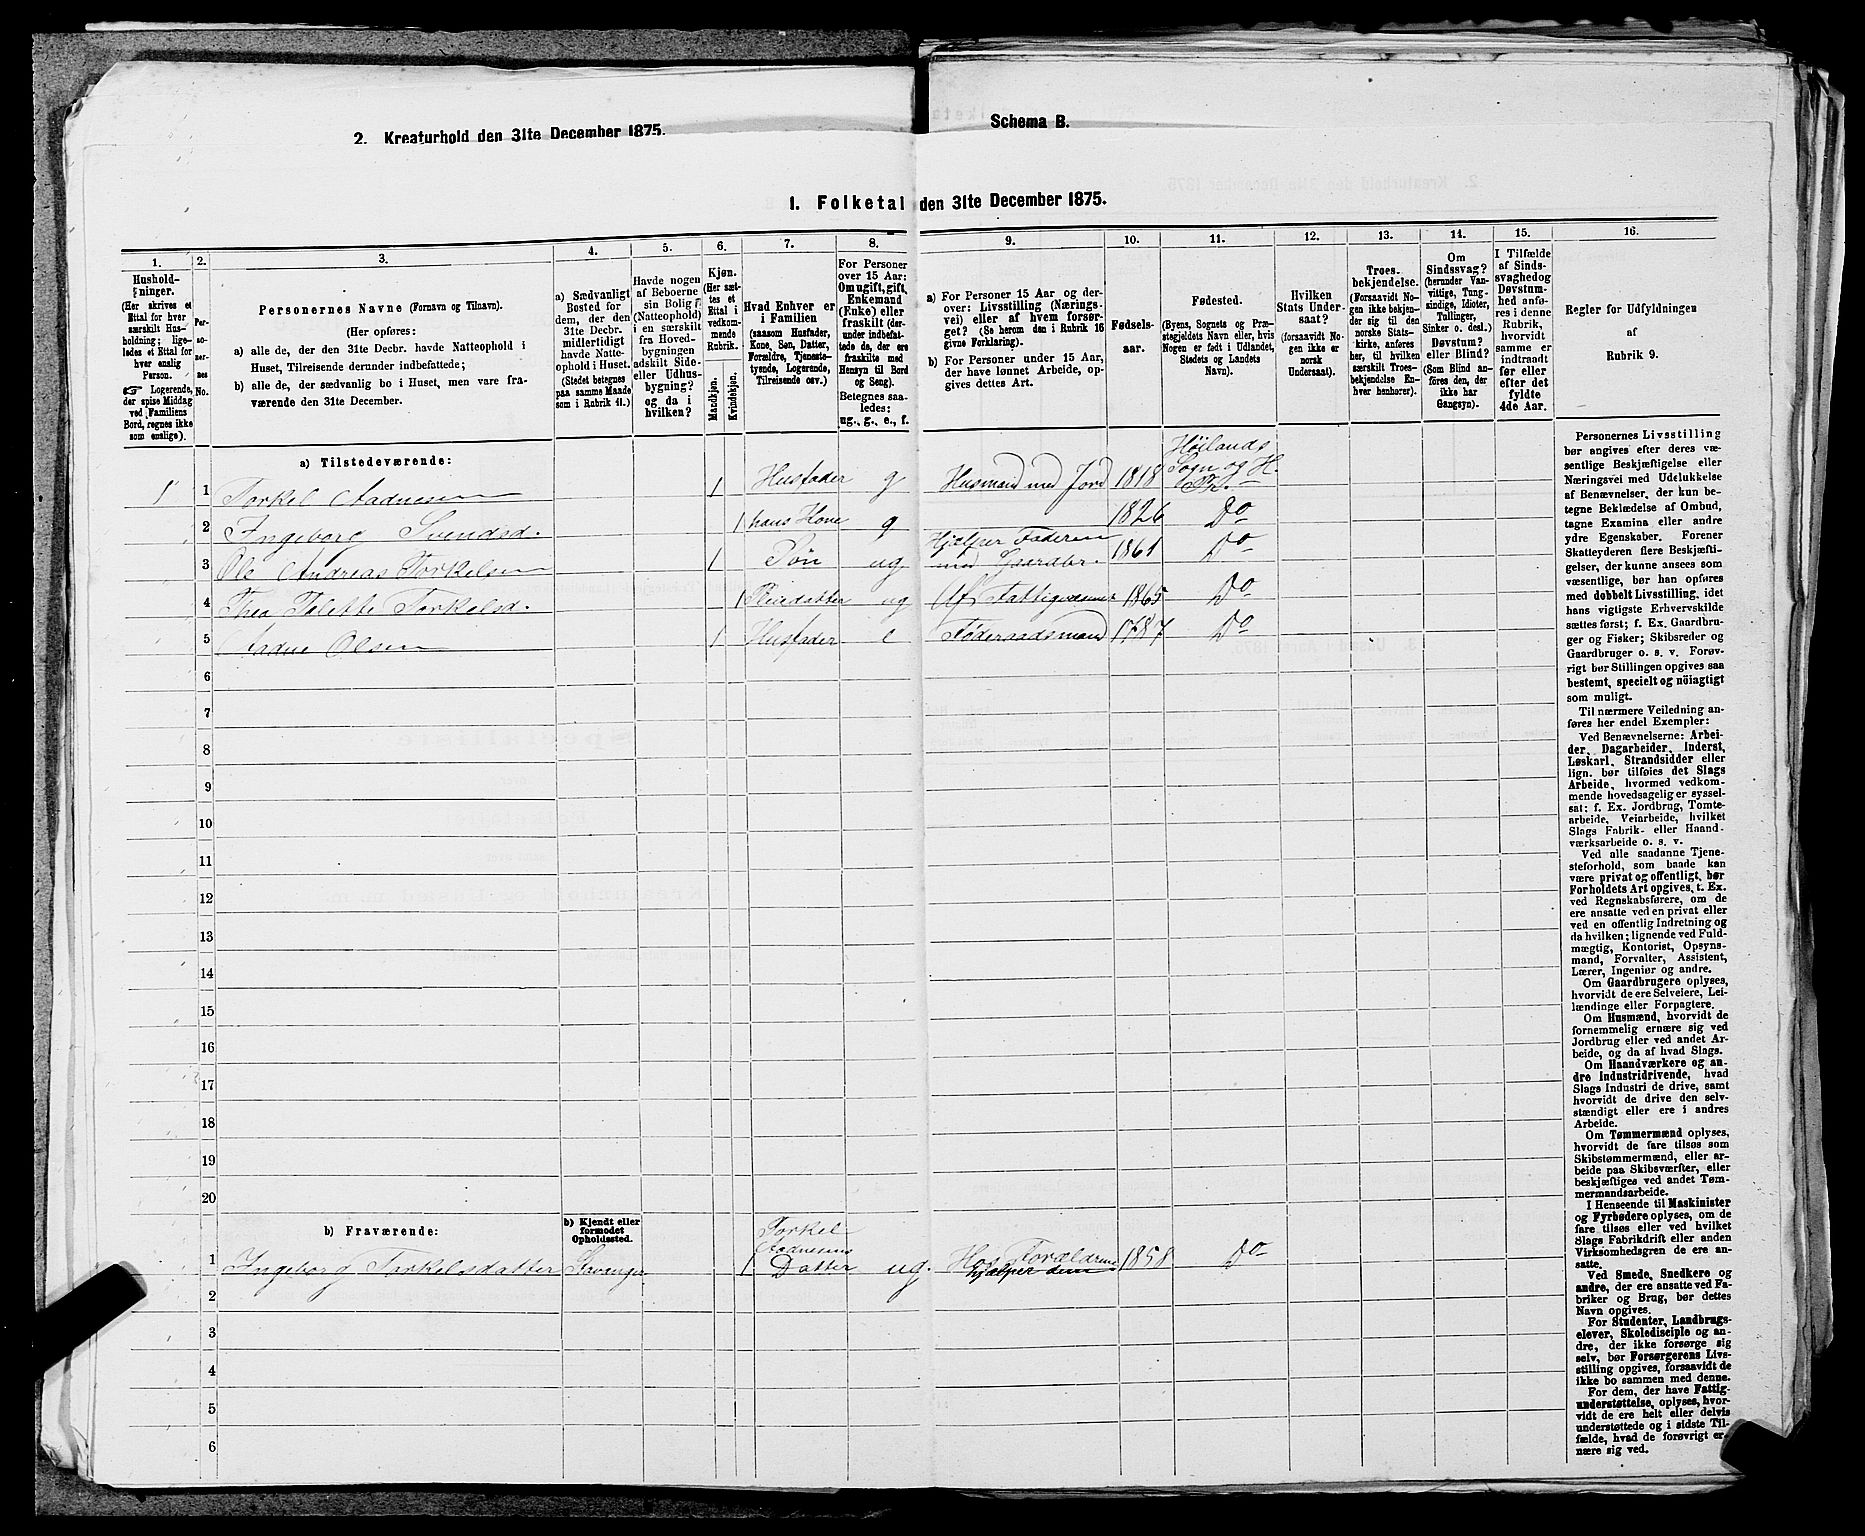 2. Kreaturhold den 31te December 1875.
Schema B.
1. Folketal den 31te December 1875.
1.
2.
3.
4.
5.
6.
7.
8.
9.
10.
11.
12.
13.
14.
15.
16.
Hushold-
ninger.
(Her skrives et
Ettal for hver
særskilt Hus-
holdning; lige-
ledes et Ettal for
hver enslig
Person.
☞ Logerende,
der spise Middag
ved Familiens
Bord, regnes ikke
som enslige).
Per-
so-
ner-
nes
No.
Personernes Navne (Fornavn og Tilnavn).
(Her opføres:
a) alle de, der den 31te Decbr. havde Natteophold i
Huset, Tilreisende derunder indbefattede;
b) alle de, der sædvanlig bo i Huset, men vare fra-
værende den 31te December.
a) Sædvanligt
Bosted for
dem, der den
31te Decbr.
midlertidigt
havde Natte-
ophold i Huset.
(Stedet betegnes
paa samme Maade
som i Rubrik 11.)
Havde nogen
af Beboerne
sin Bolig
(Natteophold)
i en særskilt
fra Hoved-
bygningen
adskilt Side-
eller Udhus-
bygning?
og da i
hvilken?
Kjøn.
(Her sæt-
tes et
Ettal i
vedkom-
mende
Rubrik.
Mandkjøn.
Kvindekjøn.
Hvad Enhver er
i Familien
(saasom Husfader,
Kone, Søn, Datter,
Forældre, Tjeneste-
tyende, Logerende,
Tilreisende osv.)
For Personer
over 15 Aar:
Om ugift, gift,
Enkemand
(Enke) eller
fraskilt (der-
under indbefat-
tede de, der ere
fraskilte med
Hensyn til Bord
og Seng).
Betegnes saa-
ledes:
ug., g., e., f.
a) For Personer 15 Aar og der-
over: Livsstilling (Nærings-
vei) eller af hvem forsør-
get? (Se herom den i Rubrik 16
givne Forklaring).
b) For Personer under 15 Aar,
der have lønnet Arbeide, op-
gives dettes Art.
Fødsels-
aar.
Fødested.
(Byens, Sognets og Præ-
stegjeldets Navn eller, hvis
Nogen er født i Udlandet,
Stedets og Landets
Navn).
Hvilken
Stats Under-
saat?
(forsaavidt No-
gen ikke er
norsk
Undersaat).
Troes-
bekjendelse.
(Forsaavidt No-
gen ikke bekjen-
der sig til den
norske Stats-
kirke, anføres
her, til hvilken
særskilt Troes-
bekjendelse En-
hver henhører).
Om
Sindssvag?
(herunder Van-
vittige, Tung-
sindige, Idioter,
Tullinger,
Sinker o. desl.)
Døvstum?
eller Blind?
(Som Blind an-
føres den, der
ikke har
Gangsyn).
I Tilfælde
af Sinds-
svaghed og
Døvstum-
hed anfø-
res i denne
Rubrik,
hvorvidt
samme er
indtraadt
før eller
efter det
fyldte
4de Aar.
Regler for Udfyldningen
af
Rubrik 9.
a) Tilstedeværende:
1 1 Torkel Aadnesen 1 Husfader g Husmand med Jord 1818 Høilands
Sogn og H.
Pr.
2 Ingeborg Svendsd. 1 hans Kone g 1826 Do
3 Ole Andreas Torkelsen 1 Søn ug Hjælper Faderen
med Gaardbr. 1861 Do
4 Thea Tolette Torkelsd. 1 Pleiedatter ug Af Fattigvæsenet 1865 Do
5 Aadne Olsen 1 Husfader e Føderaadsmand 1787 Do
6
7
8
9
10
11
12
13
14
15
16
17
18
19
20
b) Fraværende:
b) Kjendt eller
formodet
Opholdssted.
1 Ingeborg Torkelsdatter Stavanger 1 Torkel
Aadnesens
Datter ug. Hos Forældrene
hjælper dem 1858 Do
2
3
4
5
6
Personernes Livsstilling
bør angives efter deres væ-
sentlige Beskjæftigelse eller
Næringsvei med Udelukkelse
af Benævnelser, der kun be-
tegne Beklædelse af Ombud,
tagne Examina eller andre
ydre Egenskaber. Forener
Skatteyderen flere Beskjæfti-
gelser, der kunne ansees som
væsentlige, bør han opføres
med dobbelt Livsstilling, idet
hans vigtigste Erhvervskilde
sættes først; f. Ex. Gaardbru-
ger og Fisker; Skibsreder og
Gaardbruger o. s. v. Forøv-
rigt bør Stillingen opgives saa
bestemt, specielt og nöiagtigt
som muligt.
Til nærmere Veiledning an-
føres her endel Exempler:
Ved Benævnelserne: Arbei-
der, Dagarbeider, Inderst,
Løskarl, Strandsidder eller
lign. bør tilføies det Slags
Arbeide, hvormed vedkom-
mende hovedsagelig er syssel-
sat; f. Ex. Jordbrug, Tomte-
arbeide, Veiarbeide, hvilket
Slags Fabrik- eller Haand-
værksarbeide o. s. v.
Ved alle saadanne Tjene-
steforhold, som baade kan
være privat og offentligt, bør
Forholdets Art opgives, t. Ex.
ved Regnskabsførere, om de
ere ansatte ved en privat eller
ved en offentlig Indretning og
da hvilken; lignende ved Fuld-
mægtig, Kontorist, Opsyns-
mand, Forvalter, Assistent,
Lærer, Ingeniør og andre.
Om Gaardbrugere oplyses,
hvorvidt de ere Selveiere, Lei-
lændinge eller Forpagtere.
Om Husmænd, hvorvidt de
fornemmelig ernære sig ved
Jordbrug eller ved andet Ar-
beide, og da af hvad Slags.
Om Haandværkere og an-
dre Industridrivende, hvad
Slags Industri de drive, samt
hvorvidt de drive den selv-
stændigt eller ere i andres
Arbeide.
Om Tømmermænd oplyses,
hvorvidt de fare tilsøs som
Skibstømmermænd, eller ar-
beide paa Skibsværfter, eller
beskjæftiges ved andet Tøm-
mermandsarbeide.
I Henseende til Maskinister
og Fyrbødere oplyses, om de
fare tilsøs eller ved hvilket
Slags Fabrikdrift eller anden
Virksomhedsgren de ere an-
satte.
Ved Smede, Snedkere og
andre, der ere ansatte ved Fa-
briker og Brug, bør dettes
Navn opgives.
For Studenter, Landbrugs-
elever, Skoledisciple og an-
dre, der ikke forsørge sig
selv, bør Forsørgerens Livs-
stilling opgives, forsaavidt de
ikke bo sammen med denne.
For dem, der have Fattig-
understøttelse, oplyses, hvor-
vidt de ere helt eller delvis
understøttede og i sidste Til-
fælde, hvad de forøvrigt er-
nære sig ved.